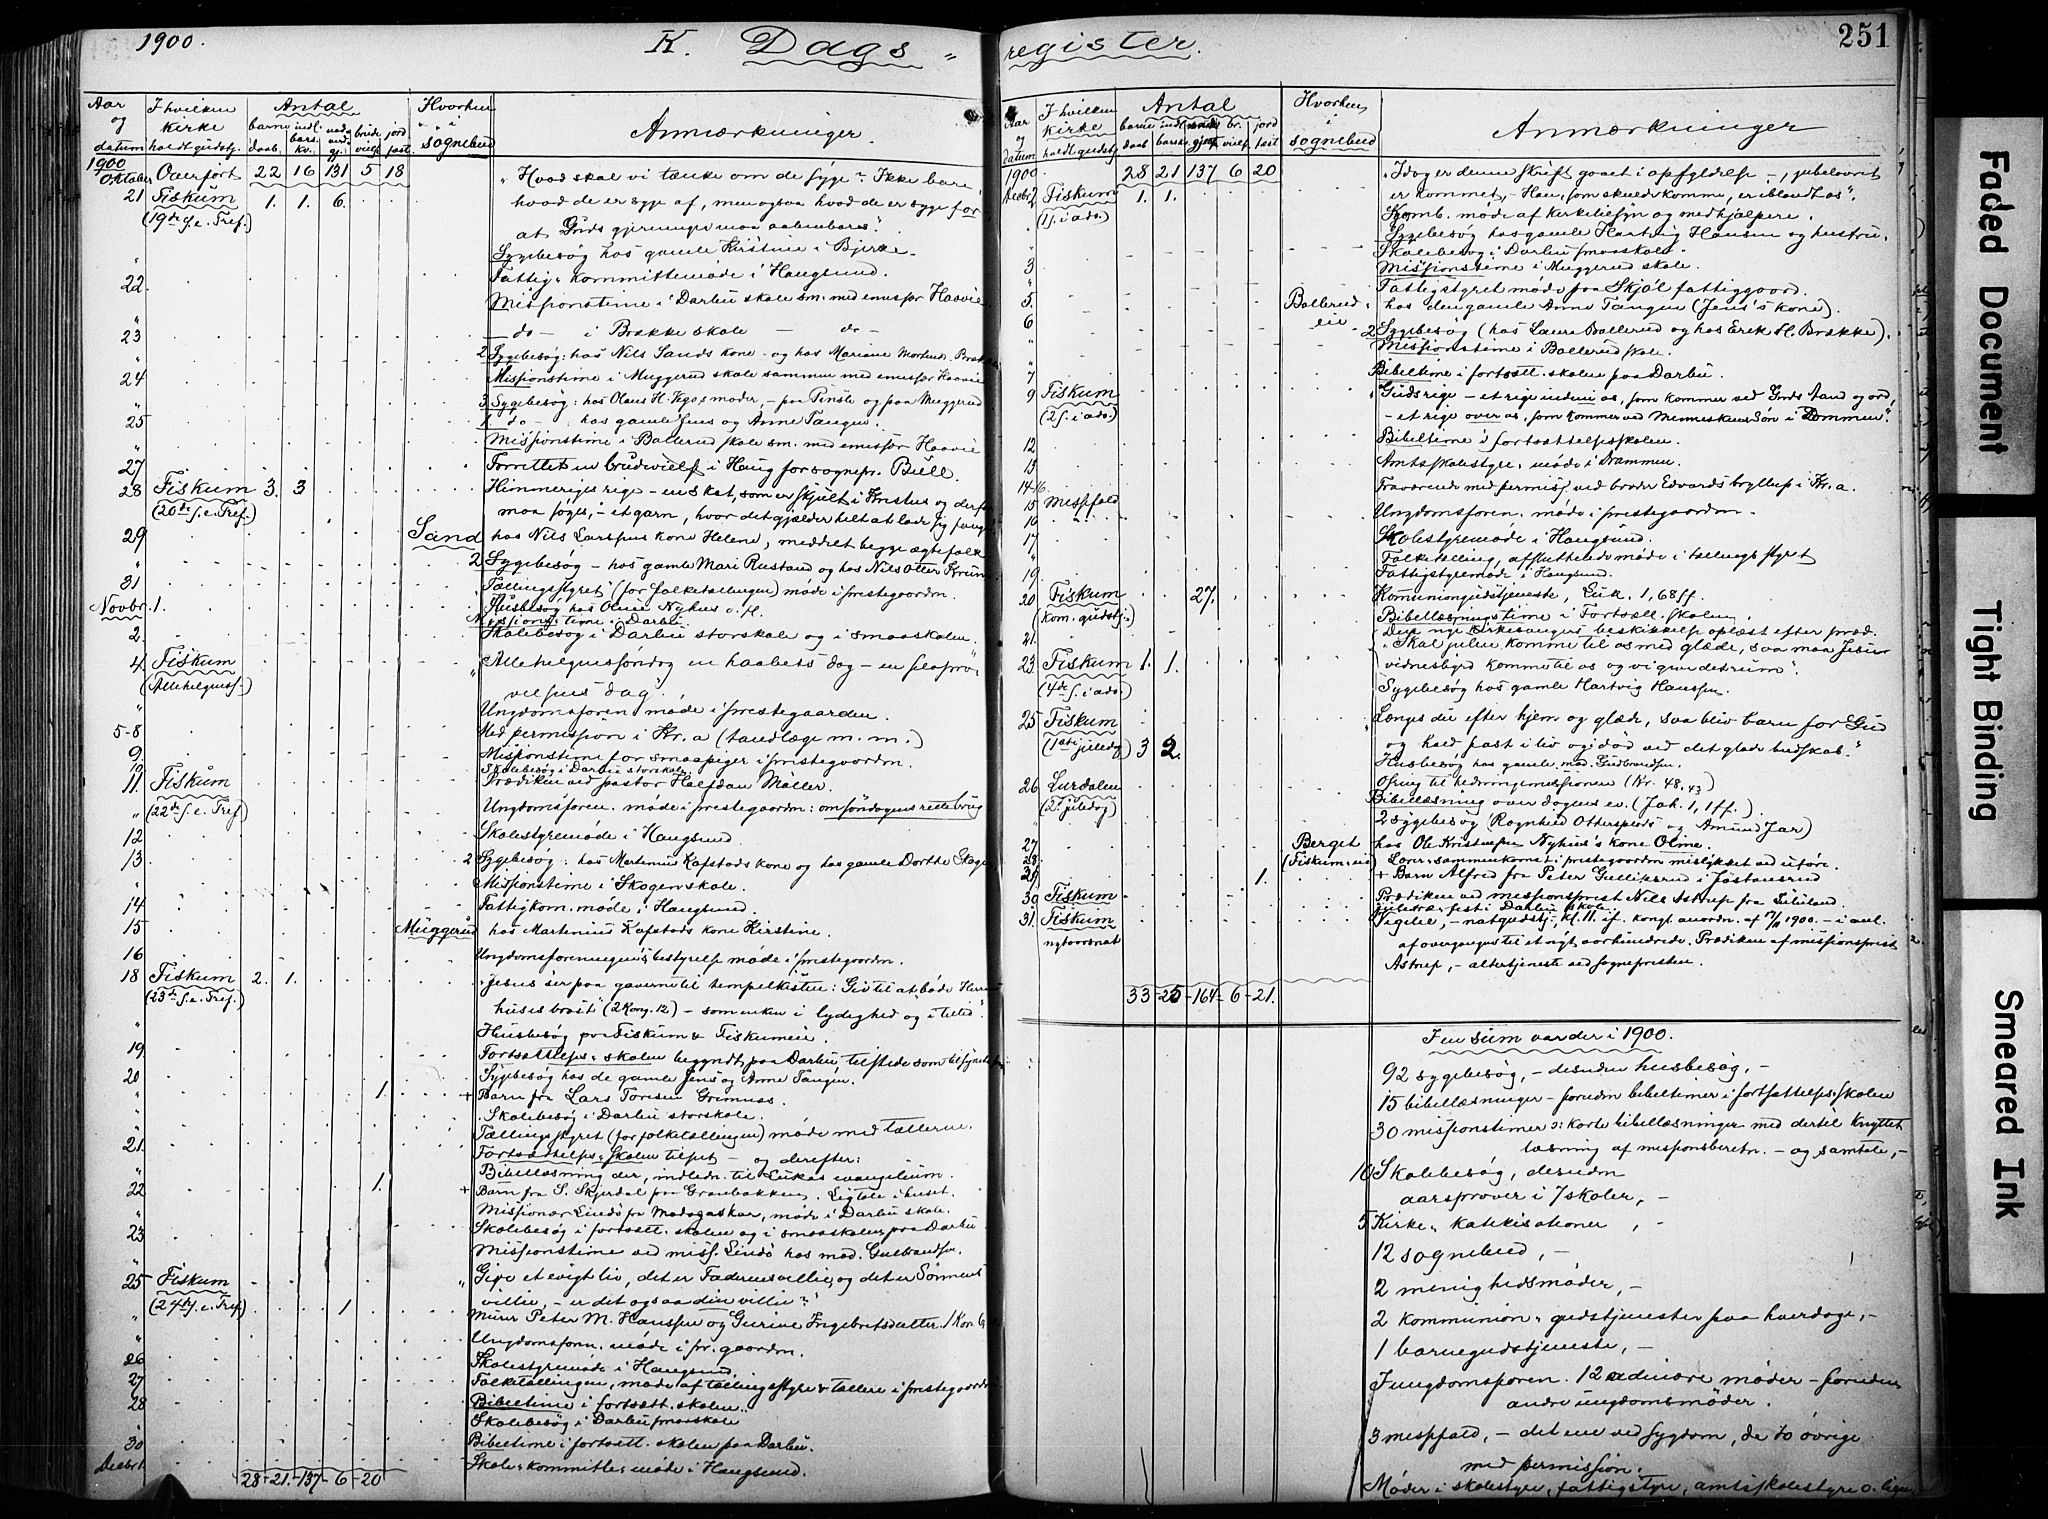 1900.
K. Dags-
Aar og datum
I hvilken kirke holdt gudstj.
Antal
barne daab
indl. bars. kv.
nadv. gj.
brude vielf
jord fast.
Hvorhen i sognebud
Anmærkninger
1900 Oktober Overført 22 16 131 5 18 "Hvad skal vi tænke om de syge? Ikke bare,
21 Fiskum 1. 1. 6. hvad de er syge af, men ogsaa hvad de er syge for
(19de s. e. Tref.) at Guds gjerninger maa aabenbares."
" Sygebesøg hos gamle Kirstine i Bjerke.
22. Fattig-kommittemøde i Haugsund.
Missionstime i Darbu skole sm. med emissær Haavie
" - do - i Brække skole - do -
23 2 Sygebesøg: hos Nils Sands kone - og hos Mariane
24 Missionstime i Muggerud skole sammen med emissær Haavie
" 3 Sygebesøg: hos Olaus H. moder, - paa Tinsle og paa Muggerud
25 1. do - hos gamle Jens og Anne Tangen.
" Missionstime i Ballerud skole sm. med emissær Haavie
27 Forrettet en brudevielse i Haug for sognepr. Bull.
28 Fiskum 3. 3 Himmeriges rige - en skat, som er skjult i Kristus og derfor
(20de s. e. Tref.) maa søges, - et garn, hvor det gjælder helt at lade sig fange
29 Sand hos Nils Larsens kone Helene, meddelt begge ægtefolk
" 2 Sygebesøg - hos gamle Mari Rustand og hos Nils Otter
31 Tællingsstyret (for folketællingen) møde i prestegaarden.
Novbr. 1. Husbesøg hos Oline Nyhus o. fl.
Missionstime i Darbu.
2. Skolebesøg i Darbu storskole og i smaaskolen.
4. Fiskum "Allehelgenssøndag en haabets dag - en
(Allehelgenss.) velsens dag".
" Ungdomsforen. møde i prestegaarden.
5-8 Med permission i Kr.a (tandlæge m. m.)
9. Missionstime for smaapiger i prestegaarden.
10 Skolebesøg i Darbu storskole
11. Fiskum Prædiken ved pastor Halfdan Møller.
" (22de s. e. Tref) Ungdomsforen. møde i prestegaarden: om søndagens rette brug
12 Skolestyremøde i Haugsund.
13 2 Sygebesøg: hos Martinius Kafstads kone og hos gamle Dorthe
" Missionstime i Skogen skole.
14 Fattigkom. møde i Haugsund.
15 Muggerud hos Martinius Kafstads kone Kirstine.
16 Ungdomsforeningens bestyrelse møde i prestegaarden.
18 Fiskum 2. 1. "Jesus ser paa gaverne til tempelkisten: Giv til at bøde Herrens
(23de s. e. Tref.) huses brøst" (2 Kong. 12) - som enken i lydighed og i tillid."
" Husbesøg paa Fiskum & Fiskumeie.
19. Fortsættelses-skolen begyndt paa Darbu, tilstede som
20 Sygebesøg hos de gamle Jens og Anne Tangen.
1. + Barn fra Lars Toresen Grimnæs.
Skolebesøg i Darbu storskole.
" Tællingsstyret (for folketællingen) møde med tællerne.
21. Fortsættelses-skolen tilset - og derefter:
" Bibellæsning der, indledn. til Lukas evangelium.
22 1. + Barn fra S. Skjerdal paa Graubakken. Ligtale i huset.
" Missionær Lindø fra Madagaskar, møde i Darbu skole.
23 Skolebesøg i fortsætt. skolen og i smaaskolen paa Darbu
Missionstime ved miss. Lindø hos mad. Gulbrandsen.
25 Fiskum "Give et evigt liv, det er Faderens villie, og det er Sønnens
(24de s. e. Tref) 1 villie, - er det ogsaa din villie?"
" Murer Peter M. Hanssen og Gurine Ingebretsdatter. 1 Kor. 6
Ungdomsforn. møde i pr. gaarden.
26 Skolestyremøde i Haugsund.
27 Folketællingen, møde af tællingsstyre & tællere i prestegaarden
28 Bibeltime i fortsætt. skolen.
" Skolebesøg i Darbu smaaskole
30 Bibeltime i fortsætt. skolen paa Darbu.
Decbr 1. 28-21-137-6-20 Skole-kommitte-møde i Haugsund.
251
register.
Aar og datum
I hvilken kirke holdt gudstj.
Antal
barne daab
indl. barsk.
gjest.
br. vielf.
jord fast
Hvorhen i sognebud
Anmærkninger
1900 28 21 137 6 20 "Idag er denne skrift gaaet i opfyldelse -, jubelaaret
Decbr. 2 Fiskum 1. 1. er kommet, - Han, som skulde komme, er iblandt os".
(1 s. i adv.) Komb. møde af kirketilsyn og medhjælpere.
" Sygebesøg hos gamle Hartvig Hansen og hustru.
" Skolebesøg i Darbu smaaskole.
3 Missionstime i Muggerud skole.
" Fattigstyret møde paa Skjøl fattiggaard.
5. Ballerud eie hos den gamle Anne Tangen (Jens's kone).
6 2 Sygebesøg (hos Laura Ballerud og hos Erik H. Brække).
" Missionstime i Ballerud skole.
7 Bibeltime i fortsætt. skolen paa Darbu.
9 Fiskum "Guds rige - et rige inden i os, som kommer ved Guds Aand og ord,
(2 s. i adv.) - et rige over os, som kommer ved Menneskens Søn i Dommen".
12 Bibeltime i fortsættelsesskolen.
13 Amtsskolestyre-møde i Drammen.
14-16 Fraværende med permiss. ved broder Edvards bryllup i Kr.a.
15 Messfald Ungdomsforen. møde i prestegaarden.
16
17 Skolestyremøde i Haugsund.
" Folketælling, afsluttende møde i tællingsstyret
19. Fattigstyremøde i Haugsund.
20 Fiskum 27. Kommuniongudstjeneste, Luk. 1,68ff.
(kom. gudstj.) Bibellæsningstime i Fortsæt. skolen.
21. Den nye kirkesangers beskikkelse oplæst efter præd.
23 Fiskum 1. 1. "Skal julen komme til os med glæde, saa maa Jesu
(4de s. i adv.) vidnesbyrd komme til os og vi give det rum".
Sygebesøg hos gamle Hartvig Hanssen.
25 Fiskum Længes du efter hjem og glæde, saa bliv barn for Gud
(1ste juledag) 3 2. og hold fast i liv og i død ved det glade budskab."
Husbesøg hos gamle mad. Gudbrandsen.
26 Lurdalen Ofring til hedningemissionen (Kr. 48,43)
(2. juledag) Bibellæsning over dagens ev. (Joh. 1,1ff.)
" 2 sygebesøg (Ragnhild og Amund Jar)
27 Berget hos Ole Kristensen Nyhus's kone Oline.
28. (Fiskum-eie) sammenkomst i prestegaarden mislykket ved uføre.
29 1. + Barn Alfred fra Peter Gulliksrud i Jøstansrud
30 Fiskum Prædiken ved missionsprest Nils Astrup fra Zululand
juletræfest i Darbu skole.
31. Fiskum Vigilie, - natgudstj., kl. 11. if. kongl. anordn. af 1900. - i anl.
nytaarsnat af overgangen til et nyt aarhundrede. Prædiken af missionsprest
Astrup, - altertjeneste ved sognepresten.
33-25-164-6-21.
I en sum var der i 1900.
92 sygebesøg, - desuden husbesøg, -
15 bibellæsninger - foruden bibeltimer i fortsættelsesskolen
30 missionstimer ɔ: korte bibellæsninger med dertil knyttet
læsning af missionsberetn. - og samtale, -
10 Skolebesøg, desuden
aarsprøver i 7 skoler, -
5 Kirke-katekisationer, -
12 sognebud, -
2 menighedsmøder, -
2 kommunion-gudstjenester paa hverdage, -
1 barnegudstjeneste, -
I ungdomsforen. 12 ordinære møder - foruden
andre ungdomsmøder.
3 messfald, - det ene ved sygdom, de to øvrige
med permission.
Møder i skolestyre, fattigstyre, amtsskolestyre o.
Faded Document
Tight Binding
Smeared Ink